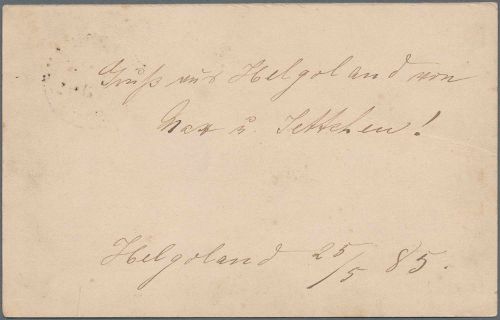 Gruß aus Helgoland von
Max u. Jettchen!
Helgoland 25/5 85.